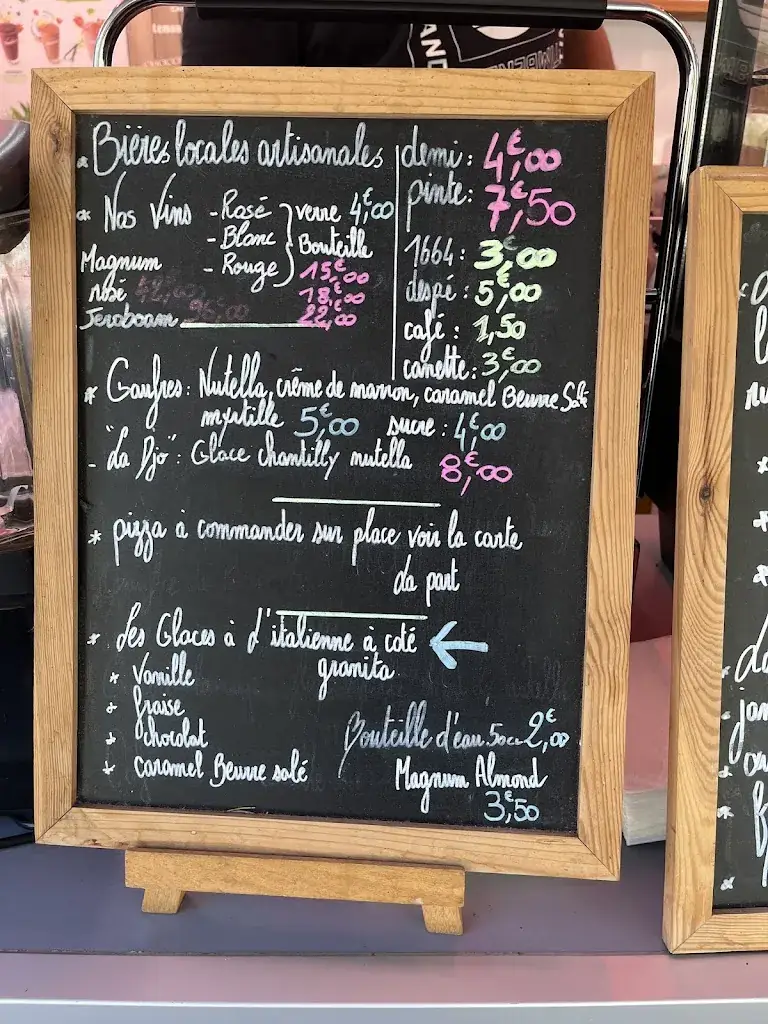 * Bières locales artisanales
demi: 4€,00
pinte: 7€,50
* Nos Vins - Rosé
- Blanc
- Rouge
verre 4€,00
Bouteille
15€,00
18€,00
22€,00
Magnum
rosé
Jéroboam
1664: 3€,00
despé: 5€,00
café: 1,50
canette: 3€,00
* Gaufres: Nutella, crème de marron, caramel Beurre Salé
myrtille 5€,00 sucre: 4€,00
- "La Djo": Glace chantilly nutella 8€,00
* pizza à commander sur place voir la carte
La part
* Les Glaces à l'italienne à coté ←
granita
* Vanille
* fraise
* chocolat
* caramel Beurre salé
Bouteille d'eau 50cl 2€,00
Magnum Almond
3€,50